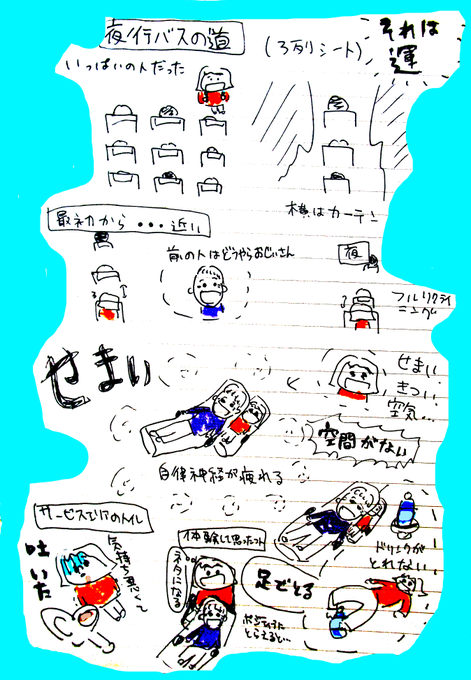 夜行バスの道
(3列シート)
それは
運
いっぱいの人だった
横はカーテン
最初から・・・近い
前の人はどうやらおじいさん
夜
フルリクライ
ニング
せまい
せまい
きつい
空気…
空間がない
自律神経が疲れる
サービスでのトイレ
吐いた
気持ち悪い〜
体験して思ったコト
ネタになる
ポジティブに
とらえると…
足でとる
ドリンクが
とれない